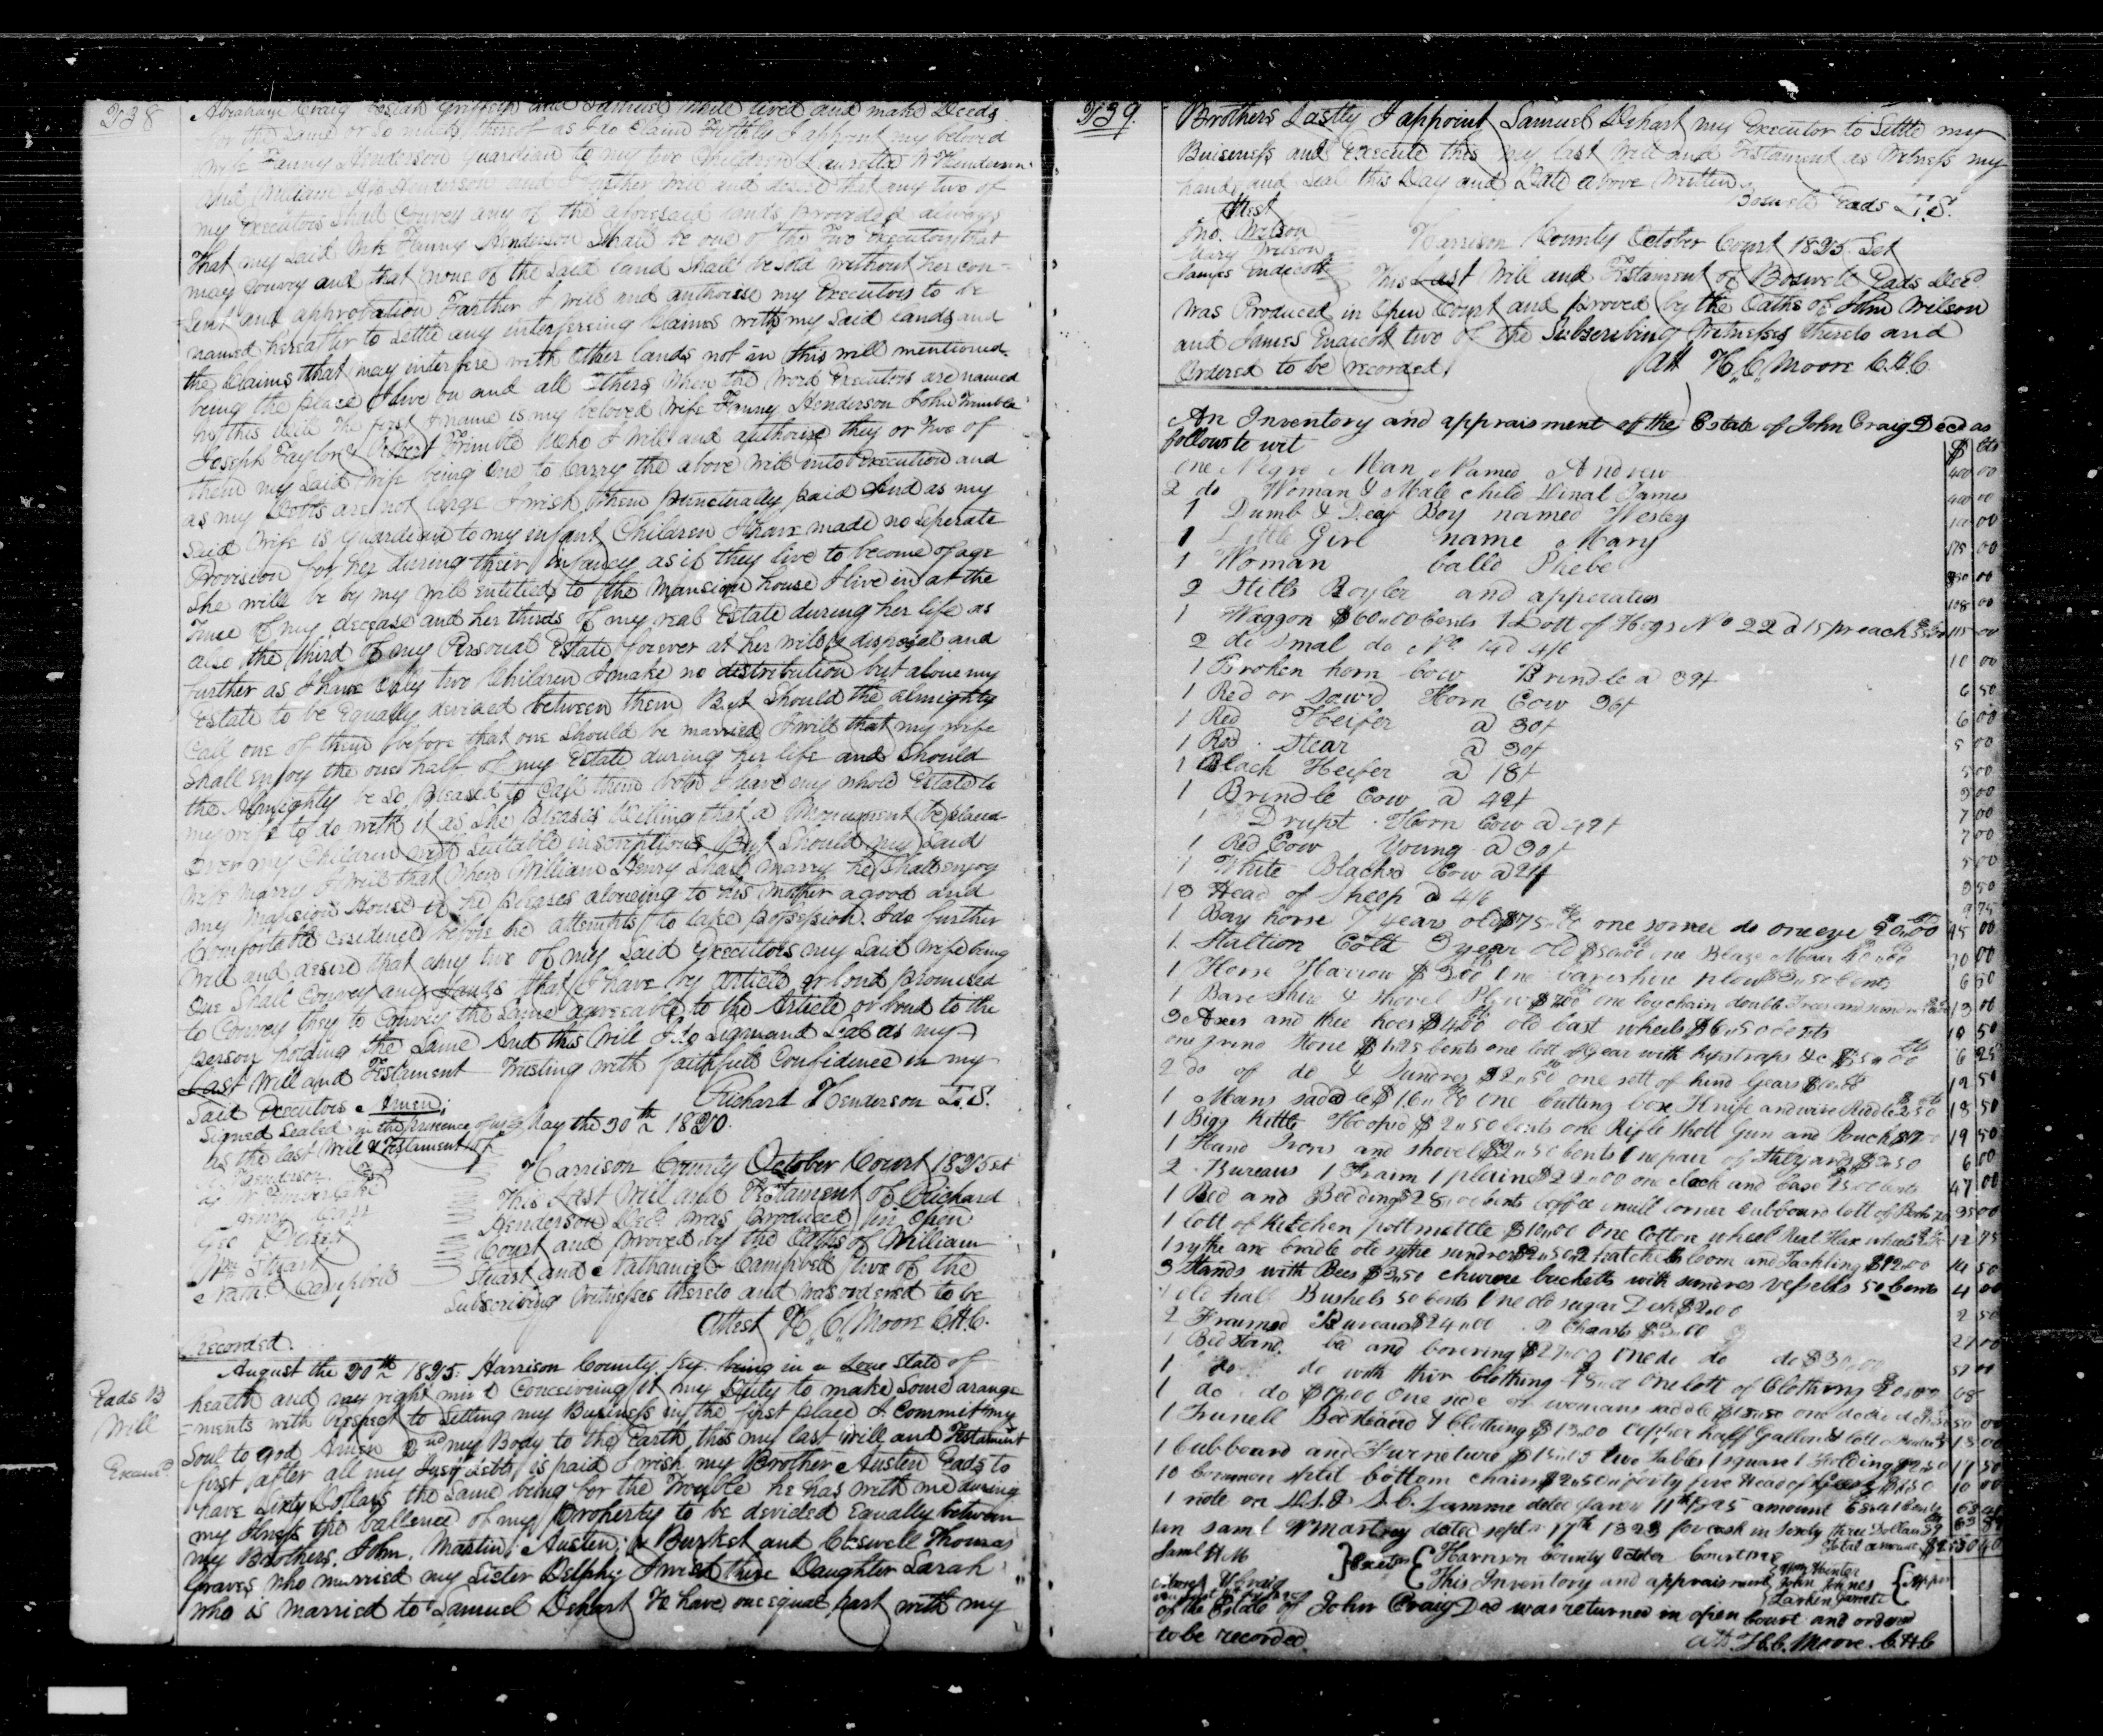 238
Abraham Craig Josiah Griffith and Samuel while lived and make Deeds
for the Same or so much thereof as I do Claim Fifthly I appoint my beloved
wife Fanny Henderson guardian to my two Children Lauretta W Henderson
and William Henderson and I farther will and desire that any two of
my Executors Shall Convey any of the aforesaid lands provided always
That my Said wife Fanny Henderson Shall be one of the Two Executors that
may Convey and that none of the Said land Shall be sold without her con=
=sent and approbation Farther I will and authorise my Executors to be
named hereafter to Settle any interfereing Claims with my Said lands and
the Claims that may interfere with Other lands not in this will mentioned
being the place I live on and all others when the word Executors are named
in this will the first I name is my beloved wife Fanny Henderson John Trimble
Joseph Taylor & Trimble Who I will and authorise they or Two of
them my Said wife being One to Carry the above will into Execution and
as my Debts are not large I wish them punctually paid And as my
Said wife is guardian to my infant Children I have made no Seperate
Provision for her during their infancy as if they live to become of age
She will be by my will entitled to the Mansion house I live in at the
Time of my decease and her thirds of my real Estate during her life as
also the third of my Personal Estate forever at her will & disposal and
further as I have Only two Children I make no distribution but alone my
Estate to be Equally devided between them But Should the almighty
Call one of them before that one Should be married I will that my wife
Shall enjoy the one half of my Estate during her life and Should
the Almighty be So Pleased to Call them both I leave my whole Estate to
my wife to do with it as She Pleases Willing that a Monument be placed
over my Children with Suitable inscriptions But Should my Said
wife marry I will that When William Henry Shall marry he Shall enjoy
my Mansion House if he pleases alowing to his Mother a good and
Comfortable residence before he attempts to take possession. I do further
will and desire that any two of my Said executors my Said wife being
One Shall Convey any lands that I have by article or bond promised
to Convey they to Convey the Same agreeable to the Article or bond to the
person holding the Same And this Will I do Sign and Seal as my
Last Will and Testament Trusting with faithfull Confidence in my
Said Executors Amen; Richard Henderson L.S.
Signed Sealed in the presence of us May the 30th 1820.
as the last Will & Testament
Henderson
Geo
Wm Stuart
Nathl Campbell
Harrison County October Court 1825 Sct
This Last Will and Testament of Richard
Henderson Decd was Produced in Open
Court and proved by the Oaths of William
Stuart and Nathaniel Campbell two of the
Subscribing Witnesses thereto and was ordered to be
Recorded. Attest H. C. Moore C.H.C.
Eads B
Will
Examd
August the 20th 1825. Harrison County Ky. being in a Low State of
health and my right mind Conceiveing it my Duty to make Some arange
=ments with respect to Setling my Business in the first place I Commit my
Soul to god Amen 2nd my Body to the Earth this my last will and Testament
first after all my Just debts is paid I wish my Brother Austen Eads to
have Sixty Dollars the Same being for the Trouble he has with me during
my Ilness the ballence of my Property to be devided Equally between
my Brothers. John, Martin, Austen, & Burket and Thomas
Graves who married my Sister Delphy I wish there Daughter Sarah
who is married to Samuel Dehart To have one equal part with my
239.
Brothers Lastly I appoint Samuel Dehart my Executor to Settle my
Buisness and Execute this my last Will and Testament as Witness my
hand and Seal this Day and Date above Written
Boswell Eads L.S.
Attest
Jno. Wilson
Mary Wilson
James Endicott
Harrison County October Court 1825 Sct
This Last Will and Testament of Boswell Eads Decd
was Produced in Open Court and proved by the Oaths of John Wilson
and James Endicott two of the Subscribing Witnesses thereto and
Ordered to be recorded. Att H. C. Moore C.H.C.
An Inventory and appraisment of the Estate of John Craig Decd as
follows to wit $ Cts
One Negro Man Named Andrew 400 00
2 do Woman & Male child Dinah James 400 00
1 Dumb & Deaf Boy named Wesley 00
1 Little Girl name Mary 175 00
1 Woman Calld Phebe 00
2 Stills Boyler and apperatus 108 00
1 Waggon $60.00 Cents 1 Lott of Hogs No 22 a 15 pr each 115 00
2 do smal do No 14 a 4/6 10 00
1 Broken horn Cow Brindle a 39/ 6 50
1 Red or Horn Cow 36/ 6 00
1 Red Heifer a 30/ 5 00
1 Red Stear a 30/ 5 00
1 Black Heifer a 18/ 3 00
1 Brindle Cow a 42/ 7 00
1 Drupt Horn Cow a 42/ 7 00
1 Red Cow Young a 30/ 5 00
1 White Blacked Cow a 21/ 3 50
13 Head of Sheep a 4/6 9 75
1 Bay horse 7 years old $75 one sorrel do one eye 20.00 95 00
1 Stallion Colt 3 year old $50.00 one Blaze Mare 00
1 Horse Harrow $3.00 One bareshire plow $3.50 Cents 6 50
1 Bare Shire & Shovel Plow one log chain double Trees and 13 00
3 Axes and thee hoes $4.00 old Cast wheels $6.50 cents 10 50
one grind Stone $1.25 Cents one lott of Gear with hipstraps &c $5.00 6 25
2 do of do & Sundres $2.50 one sett of hind Gears $10.00 12 50
1 Mans saddle $16.00 One Cutting box Knife and wire Riddle 2.50 18 50
1 Bigg Kittle Hooped $2.50 Cents one Rifle Shott Gun and Pouch 19 50
1 Hand Irons and shovel $2.50 Cents One pair of Stilyards $3.50 6 00
2 Bureaus 1 Fraim 1 plaine $22.00 one clock and Case 25.00 Cents 47 00
1 Bed and Bedding $28.00 Cents Coffee mill Corner Cubboard lott of Books 35 00
1 lott of Kitchen pottmettle $10.00 One Cotton wheel Reel Flax wheel 12 75
1 sythe and Cradle old sythe sundres $2.50 2 hatchels loom and Tackling $12.00 14 50
3 Stands with Bees $3.50 churne bucketts with sundres vessells 50 Cents 4 00
1 old half Bushels 50 Cents One do sugar Desk $2.00 2 50
2 Fraimed Bureaus $24.00 2 Chests $3.00 27 00
1 Bed Stand bed and Covering $27.00 One do do do $30.00 57 00
1 do do with thir Clothing One lott of Clothing $20.00 68
1 do do One side or womans saddle $18.00 one do do 50 00
1 Trunell Bedstead & Clothing $13.00 Copper half Gallon & lott 18 00
1 Cubboard and Furneture $15.00 two Tables 1 square 1 Folding $2.50 17 50
10 Common split bottom chairs $2.50 forty five Head of Geese 10 00
1 note on Lamme dated Janry 11th 1825 amount
1 on Saml dated Septr 17th 1823 for cash in Sixty three Dollars
Total amount
Saml H M
Craig
Executors
Harrison County October Court 1825
This Inventory and appraisment
Wm Hunter
John Jones
Larkin Garnett
Apprs
of the Estate of John Craig Decd was returned in open Court and ordered
to be recorded. Att H. C. Moore C.H.C